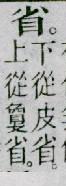 省。
下從皮省。
上從敻省。